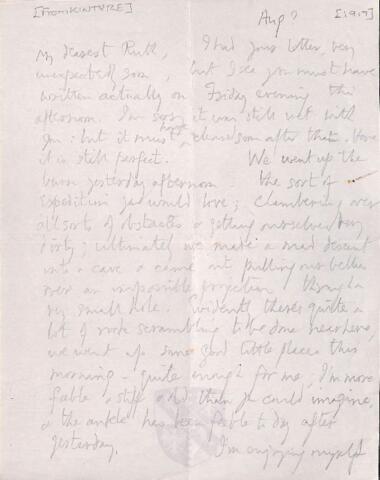 [FROM KINTYRE]
Aug? [1917]
My dearest Ruth, I had your letter, very
unexpected soon, but I see you must have
written actually on Friday evening this
afternoon. I'm sorry it was still wet with
you: but it must have cleared soon after that. Here
it is still perfect. We went up the
burn yesterday afternoon the sort of
expedition you would love; clambering over
all sorts of obstacles & getting ourselves very
dirty; ultimately we made a mad descent
into a cave & came out pulling our bellies
over an impossible projection through a
very small hole. Evidently there's quite a
lot of rock scrambling to be done near here,
we went up some good little places this
morning - quite enough for me; I'm more
feeble & stiff & old than you could imagine,
& the ankle has been feeble today after
yesterday. I'm enjoying myself